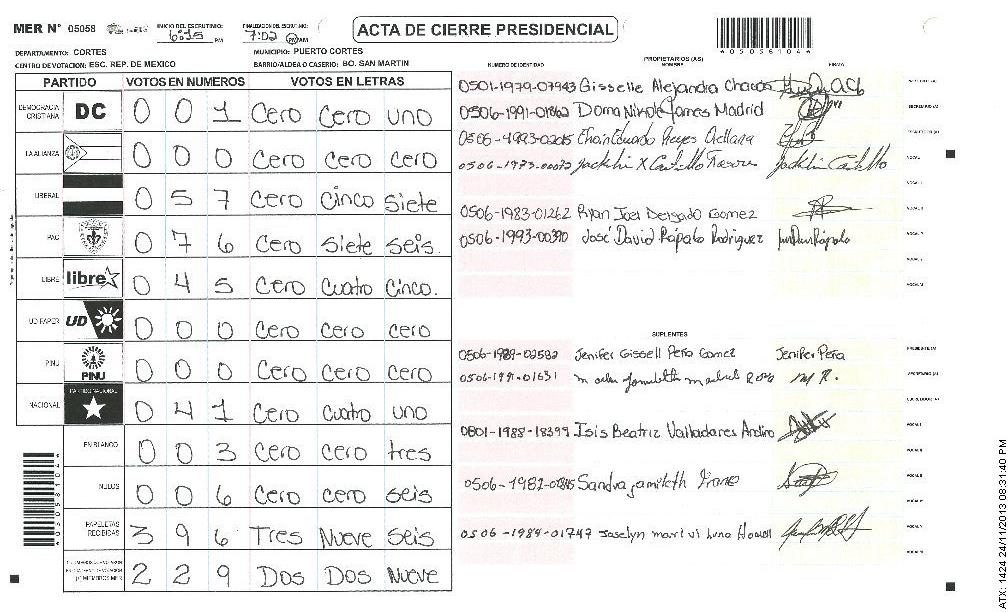 MER N° 05058 INICIO DEL ESCRUTINIO: 6:15 PM FINALIZACION DEL ESCRUTINIO: 7:02 PM ACTA DE CIERRE PRESIDENCIAL
DEPARTAMENTO: CORTES MUNICIPIO: PUERTO CORTES
CENTRO DE VOTACION: ESC. REP. DE MEXICO BARRIO/ALDEA O CASERIO: BO. SAN MARTIN
PARTIDO VOTOS EN NUMEROS VOTOS EN LETRAS
DEMOCRACIA CRISTIANA DC 0 0 1 Cero Cero uno
LA ALIANZA 0 0 0 Cero Cero Cero
LIBERAL 0 5 7 Cero Cinco Siete
PAC 0 7 6 Cero Siete Seis.
LIBRE libre 0 4 5 Cero Cuatro Cinco.
UD-FAPER UD 0 0 0 Cero Cero Cero
PINU PINU 0 0 0 Cero Cero Cero
NACIONAL PARTIDO NACIONAL 0 4 1 Cero Cuatro uno
EN BLANCO 0 0 3 Cero Cero tres
NULOS 0 0 6 Cero Cero Seis
PAPELETAS RECIBIDAS 3 9 6 Tres Nueve Seis
2 2 9 Dos Dos Nueve
PROPIETARIOS (AS)
NUMERO DE IDENTIDAD NOMBRE FIRMA
0501-1979-07943 Gisselle Alejandra
0506-1991-01862 Madrid
Reyes Orellana
0506-1973-00072 Jackelin X Castillo
0506-1983-01262 Ryan Joel Delgado Gomez
0506-1993-00390 José David Rápalo Rodriguez
SUPLENTES
0506-1989-02582 Jenifer Gissell Peña Gomez Jenifer Peña
0506-1991-01631
0801-1988-18399 Isis Beatriz Valladares Andino
Sandra
0506-1984-01747 Joselyn
ATX: 1424 24/11/2013 08:31:40 PM